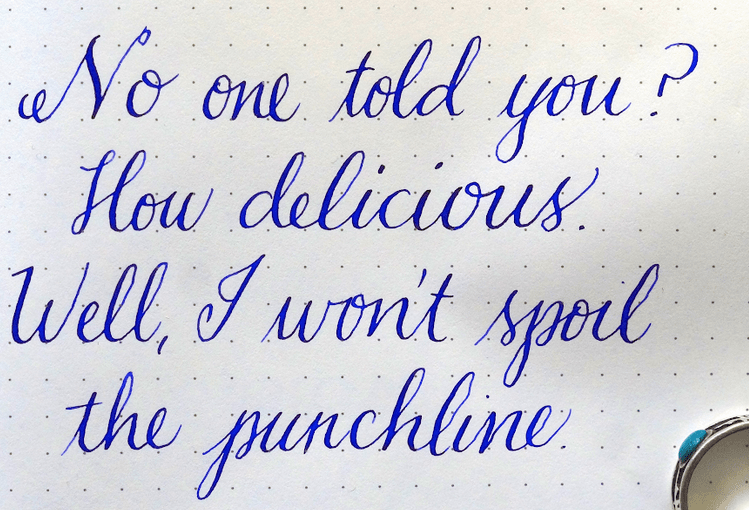 No one told you?
How delicious.
Well, I won't spoil
the punchline.